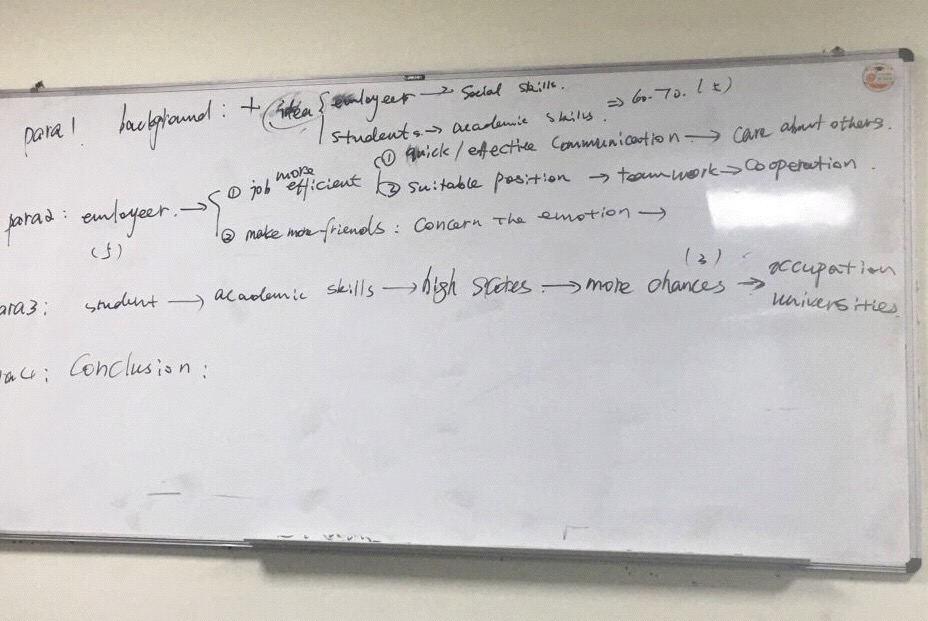 para1 background: + idea { employeer → social skills.
students → academic skills. ⇒ 60-70. (±)
para2: employeer. → { ① job more efficient { ① quick / effective communication → care about others.
② suitable position → team work → cooperation.
(5) ② make more friends: concern the emotion →
ara3: student → academic skills → high scores → more chances (3) → occupation
universities.
Conclusion: